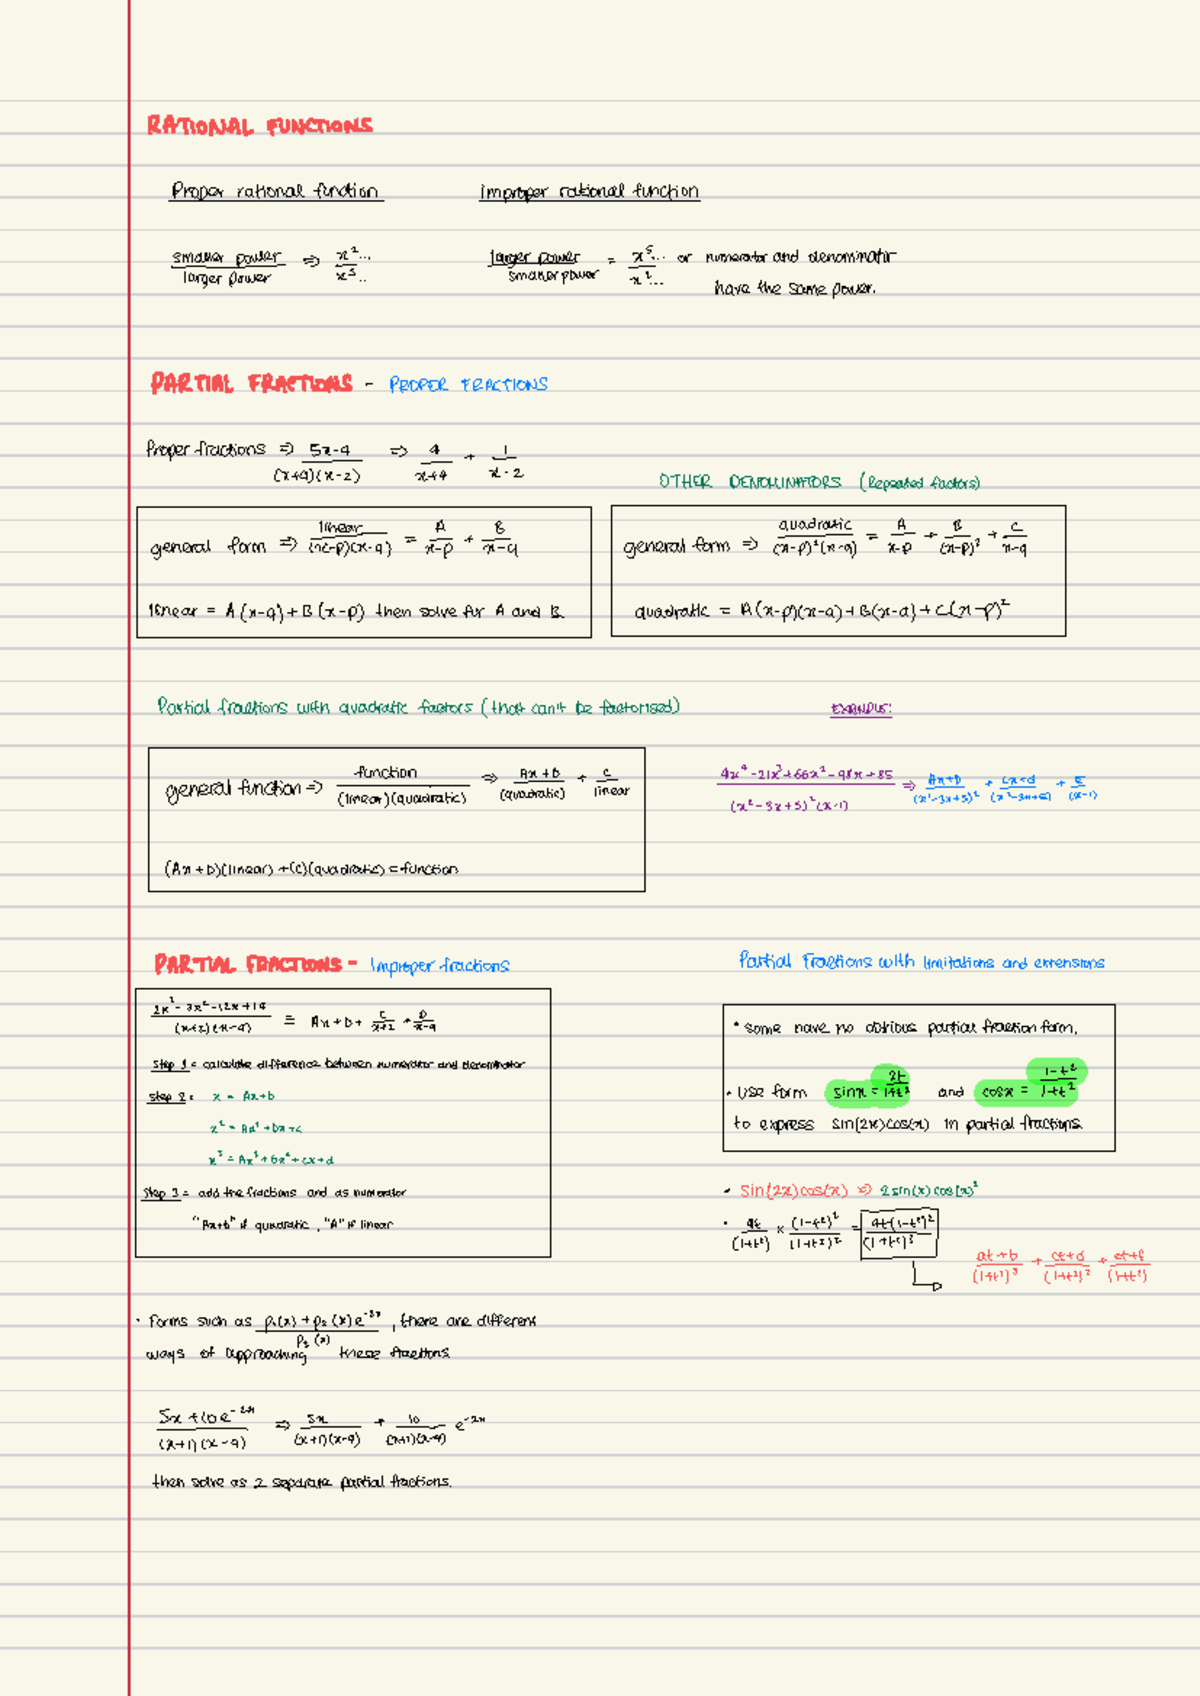 RATIONAL FUNCTIONS
Proper rational function
improper rational function
smaller power / larger power ⇒ x²... / x⁵..
larger power / smaller power = x⁵... / x²... or numerator and denominator
have the same power.
PARTIAL FRACTIONS - PROPER FRACTIONS
Proper fractions ⇒ 5x-4 / (x+4)(x-2) ⇒ 4 / x+4 + 1 / x-2
general form ⇒ linear / (x-p)(x-q) = A / x-p + B / x-q
linear = A(x-q)+B(x-p) then solve for A and B.
OTHER DENOMINATORS (Repeated factors)
general form ⇒ quadratic / (x-p)²(x-q) = A / x-p + B / (x-p)² + C / x-q
quadratic = A(x-p)(x-q)+B(x-q)+C(x-p)²
Partial fractions with quadratic factors (that can't be factorised)
general function ⇒ function / (linear)(quadratic) ⇒ Ax+b / (quadratic) + C / linear
(Ax+b)(linear)+(C)(quadratic)=function
EXAMPLE:
4x⁴-21x³+66x²-98x+85 / (x²-3x+5)²(x-1) ⇒ Ax+b / (x²-3x+5)² + Cx+d / (x²-3x+5) + E / (x-1)
PARTIAL FRACTIONS - Improper fractions
2x³-3x²-12x+14 / (x+2)(x-4) = Ax+b+ C / x+2 + D / x-4
Step 1 = calculate difference between numerator and denominator
Step 2: x = Ax+b
x² = Ax²+bx+c
x³ = Ax³+bx²+cx+d
Step 3 = add the fractions and as numerator
"Ax+b" if quadratic, "A" if linear
Partial Fractions with limitations and extensions
• some have no obvious partial fraction form.
• Use form sinx = 2t / 1+t² and cosx = 1-t² / 1+t²
to express sin(2x)cos(x) in partial fractions
• Sin(2x)cos(x) ⇒ 2sin(x)cos(x)²
• 4t / (1+t²) × (1-t²)² / (1+t²)² = 4t(1-t²)² / (1+t²)³
at+b / (1+t²)³ + ct+d / (1+t²)² + et+f / (1+t²)
• Forms such as p₁(x)+p₂(x)e⁻²ˣ / p₃(x), there are different
ways of approaching these fractions
5x+10e⁻²ˣ / (x+1)(x-4) ⇒ 5x / (x+1)(x-4) + 10 / (x+1)(x-4) e⁻²ˣ
then solve as 2 separate partial fractions.